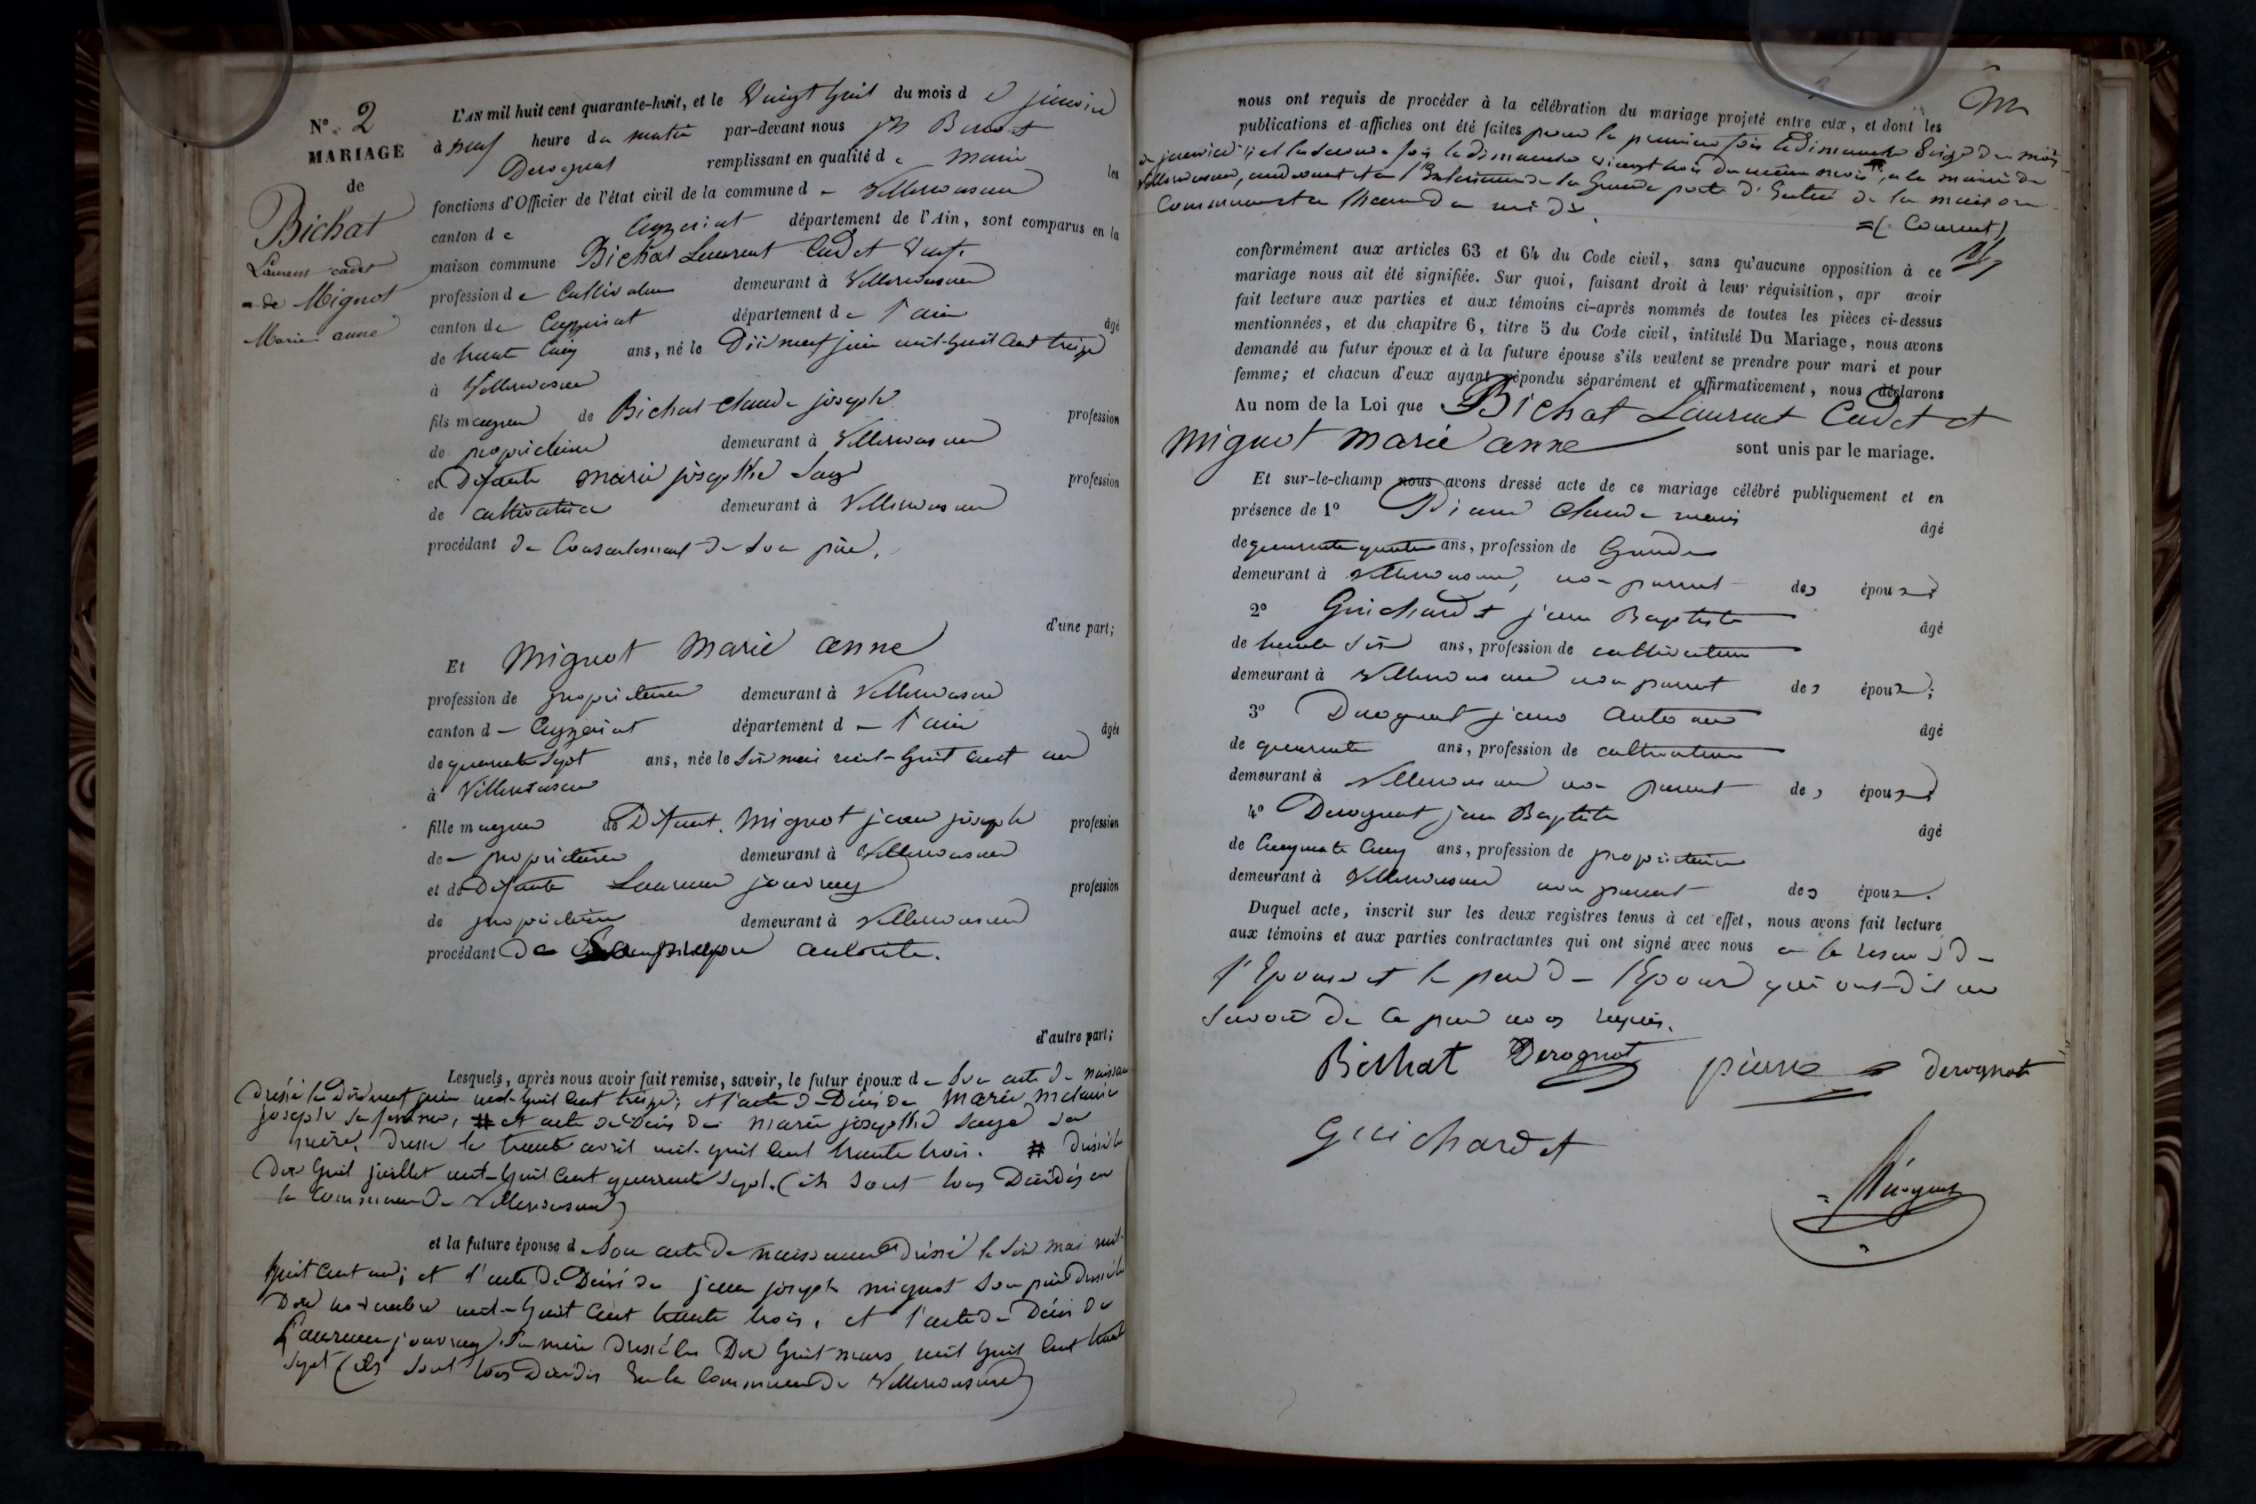 N°. 2
MARIAGE
de
Bichat
Laurent cadet
de Mignot
Marie anne
L'AN mil huit cent quarante-huit, et le Vingt huit du mois d e janvier
à neuf heure du matin par-devant nous jh Benoit
Derognat remplissant en qualité de maire les
fonctions d'Officier de l'état civil de la commune de Villereversure
canton de Ceyzeriat département de l'Ain, sont comparus en la
maison commune Bichat Laurent Cadet Veuf.
profession de Cultivateur demeurant à Villereversure
canton de Ceyzeriat département de l'ain âgé
de trente cinq ans, né le Dix neuf juin mil-huit cent treize
à Villereversure
fils majeur de Bichat Claude joseph profession
de propriétaire demeurant à Villereversure
et Défunte marie josephte profession
de cultivatrice demeurant à Villereversure
procédant du Consentement de Son père.
d'une part;
Et Mignot Marie anne
profession de propriétaire demeurant à Villereversure
canton de Ceyzeriat département de l'ain âgée
de quarante Sept ans, née le Six mai mil-huit cent un
à Villereversure
fille majeure de Défunt. Mignot jean joseph profession
de propriétaire demeurant à Villereversure
et de Défunte Laurence profession
de propriétaire demeurant à Villereversure
procédant De Sa propre autorité.
d'autre part;
Lesquels, après nous avoir fait remise, savoir, le futur époux de Son acte de naissance
Dressé le Dix neuf juin mil-huit cent treize; et l'acte de Décès de Marie
joseph Sa femme, # et acte de Décès de marie josephte Sa
mère, Dressé le trente avril mil-huit cent trente trois. # Dressé le
Dix huit juillet mil-huit cent quarante Sept. (ils Sont tous Décédés en
la Commune de Villereversure)
et la future épouse de Son acte De naissance Dressé le Six mai mil-
huit cent un; et l'acte De Décès de jean joseph mignot Son père Dressé le
novembre mil-huit cent trente trois, et l'acte de Décès de
Laurence Sa mère Dressé le Dix huit mars mil huit cent trente
Sept (ils Sont tous Décédés En la Commune de Villereversure)
nous ont requis de procéder à la célébration du mariage projeté entre eux, et dont les
publications et affiches ont été faites pour la première fois le Dimanche Seize Du mois
de janvier; et la Seconde fois le dimanche vingt trois du même mois, a la mairie de
Villereversure, audevant et a l'Exterieur de la Grande porte d'Entrée de la maison
Commune a l'heure de midi.
=(. Courant)
conformément aux articles 63 et 64 du Code civil, sans qu'aucune opposition à ce
mariage nous ait été signifiée. Sur quoi, faisant droit à leur réquisition, apr avoir
fait lecture aux parties et aux témoins ci-après nommés de toutes les pièces ci-dessus
mentionnées, et du chapitre 6, titre 5 du Code civil, intitulé Du Mariage, nous avons
demandé au futur époux et à la future épouse s'ils veulent se prendre pour mari et pour
femme; et chacun d'eux ayant répondu séparément et affirmativement, nous déclarons
Au nom de la Loi que Bichat Laurent Cadet et
Mignot Marie anne sont unis par le mariage.
Et sur-le-champ nous avons dressé acte de ce mariage célébré publiquement et en
présence de 1° Claude marie âgé
de quarante quatre ans, profession de Garde
demeurant à Villereversure, non parent des époux;
2° Guichardet jean Baptiste âgé
de trente Six ans, profession de cultivateur
demeurant à Villereversure non parent des époux;
3° Derognat jean Antoine âgé
de quarante ans, profession de cultivateur
demeurant à Villereversure non parent des époux;
4° Derognat jean Baptiste âgé
de Cinquante Cinq ans, profession de propriétaire
demeurant à Villereversure non parent des époux.
Duquel acte, inscrit sur les deux registres tenus à cet effet, nous avons fait lecture
aux témoins et aux parties contractantes qui ont signé avec nous a la reserve De
l'Epouse et le père De l'Epoux qui ont dit ne
Savoir de ce par nous requis.
Bichat Derognat pierre derognat
Guichardet
Derognat